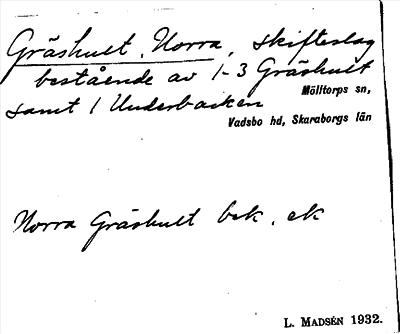 Gräshult, Norra, skifteslag
bestående av 1-3 Gräshult
samt 1 Underbacken
Mölltorps sn,
Vadsbo hd, Skaraborgs län
Norra Gräshult bek. ek
L. MADSÉN 1932.